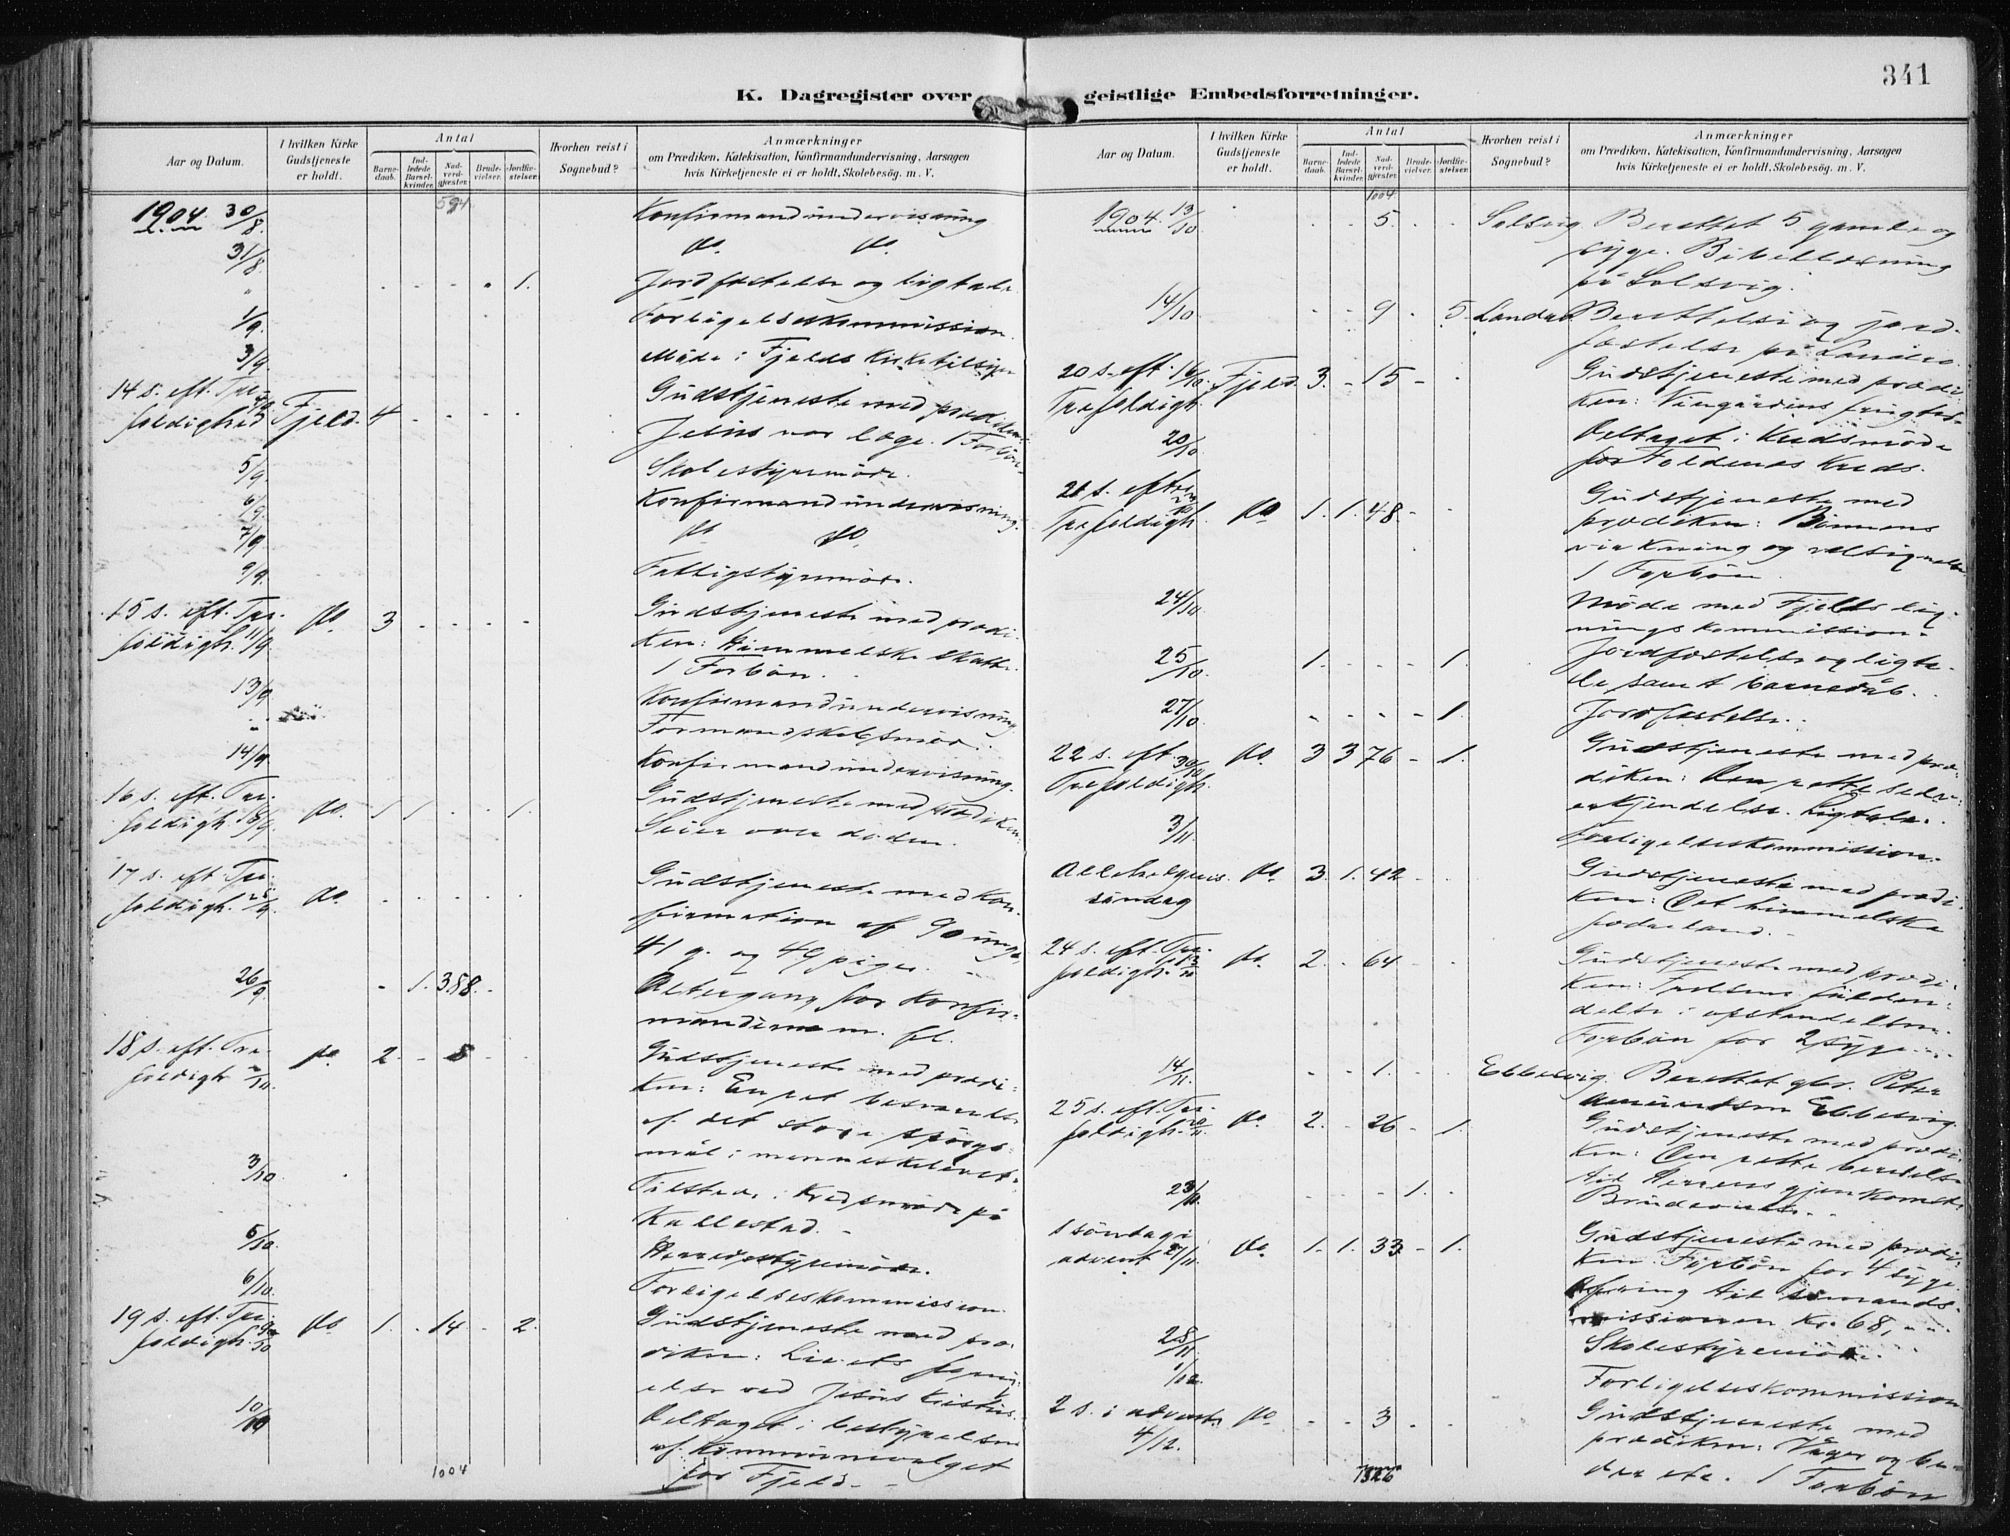 341
K. Dagregister over geistlige Embedsforretninger.
Aar og Datum.
I hvilken Kirke Gudstjeneste er holdt.
Antal
Barnedaab.
Indledede Barselkvinder.
Nadverdgjester.
Brudevielser.
Jordfæstelser.
Hvorhen reist i Sognebud?
Anmærkninger
om Prædiken, Katekisation, Konfirmandundervisning, Aarsagen
hvis Kirketjeneste ei er holdt, Skolebesøg. m. V.
1904. 30/8. Konfirmandundervisning
31/8. do. do.
" - - - - 1. Jordfæstelse og ligtale.
1/9. Forligelseskommission.
3/9 Møde i Fjelds Kirketilsyn
14 s. eft. Tre- Gudstjeneste med prædiken:
foldighed Fjeld. 4 - - - - Jesus vor læge. 1 Forbøn.
5/9. Skolestyremøde.
6/9. Konfirmandundervisning.
7/9. do do.
9/9. Fattigstyremøde.
15 s. eft. Tre- do. 3 - - - - Gudstjeneste med prædi-
foldigh. 11/9 ken: Himmelske skatte.
1 Forbøn.
13/9. Konfirmandundervisning.
" Formandskabsmøde.
14/9. Konfirmandundervisning.
16 s. eft. Tre- do. 1 1 - - 1. Gudstjeneste med prædiken:
foldigh. 18/9. Seier over døden.
17 s. eft. Tre- do. - - - - - Gudstjeneste med kon-
foldigh. 25/9. firmation af 90 unge,
41 g. og 49 piger.
26/9 - 1. 388. - Altergang for konfir-
manderne m. fl.
18 s. eft. Tre- do. 2. - 8 - Gudstjeneste med prædi-
foldigh 2/10. ken: Enhet besvarelse
af det store spørgs-
mål i menneskelivet.
3/10 Tilstede i Kredsmøde på
Kallestad.
5/10 Herredsstyremøde.
6/10. Forligelseskommission.
19 s. eft. Tre- do. 1. - 14 - 2. Gudstjeneste med præ-
foldigh. 9/10 diken: Livets fornÿ-
else ved Jesus Kristus.
10/10 Deltaget i bestyrelsen
af Kommunevalget
for Fjeld.
1004
Aar og Datum.
I hvilken Kirke Gudstjeneste er holdt.
Antal
Barnedaab.
Indledede Barselkvinder.
Nadverdgjester.
Brudevielser.
Jordfæstelser.
Hvorhen reist i Sognebud?
Anmærkninger
om Prædiken, Katekisation, Konfirmandundervisning, Aarsagen
hvis Kirketjeneste ei er holdt, Skolebesøg. m. V.
1004
1904. 13/10 - - 5. - - Solsvig. Berettet 5 gamle og
syge. Bibellæsning
på Solsvig.
14/10 - - 9 - 5. Landro Berettelse og jord-
fæstelse på Landro.
20 s. eft. 16/10. Fjeld. 3. - 15 - - Gudstjeneste med prædi-
Trefoldigh. ken: Vingårdens frugter.
20/10 Deltaget i Kredsmøde
for Foldenæs Kreds.
21 s. eft. 23/10 Gudstjeneste med
Trefoldigh. do 1. 1. 48 - - prædiken: Bønnens
virkning og velsignelse
1 Forbøn.
24/10 Møde med Fjelds lig-
ningskommission.
25/10 1. - - - 1. Jordfæstelse og ligta-
le samt barnedåb.
27/10 - - - - 1. Jordfæstelse.
22 s. eft. 30/10 do. 3 3 76 - 1. Gudstjeneste med præ-
Trefoldigh. diken: Den rette selv-
erkjendelse. Ligtale.
3/11. Forligelseskommission.
Allehelgens- do. 3. 1. 42 - - Gudstjeneste med prædi-
søndag ken: Det himmelske
fædreland.
24 s. eft. Tre- do. 2. - 64 - - Gudstjeneste med prædi-
foldigh. 13/11 ken: Frelsens fulden-
delse i opstandelsen.
Forbøn for 2 syge.
14/11. - - 1. - - Ebbesvig. Berettet gbr. Peter
Amundsen Ebbesvig.
25 s. eft. Tre- do. 2. - 26 - 1. Gudstjeneste med prædi-
foldigh. 20/11. ken: Den rette beredelse
til Herrens gjenkomst.
23/11. - - - 1. - Brudevielse.
1 søndag i do. 1. 1. 33 - 1. Gudstjeneste med prædi-
advent 27/11. ken. Forbøn for 4 syge.
Ofring til sømands-
missionen Kr. 68, " "
28/11 Skolestyremøde.
1/12. Forligelseskommission
2 s. i advent do - - 3 - - Gudstjeneste med
4/12. prædiken: Våger og be-
der etc. 1 Forbøn
1326